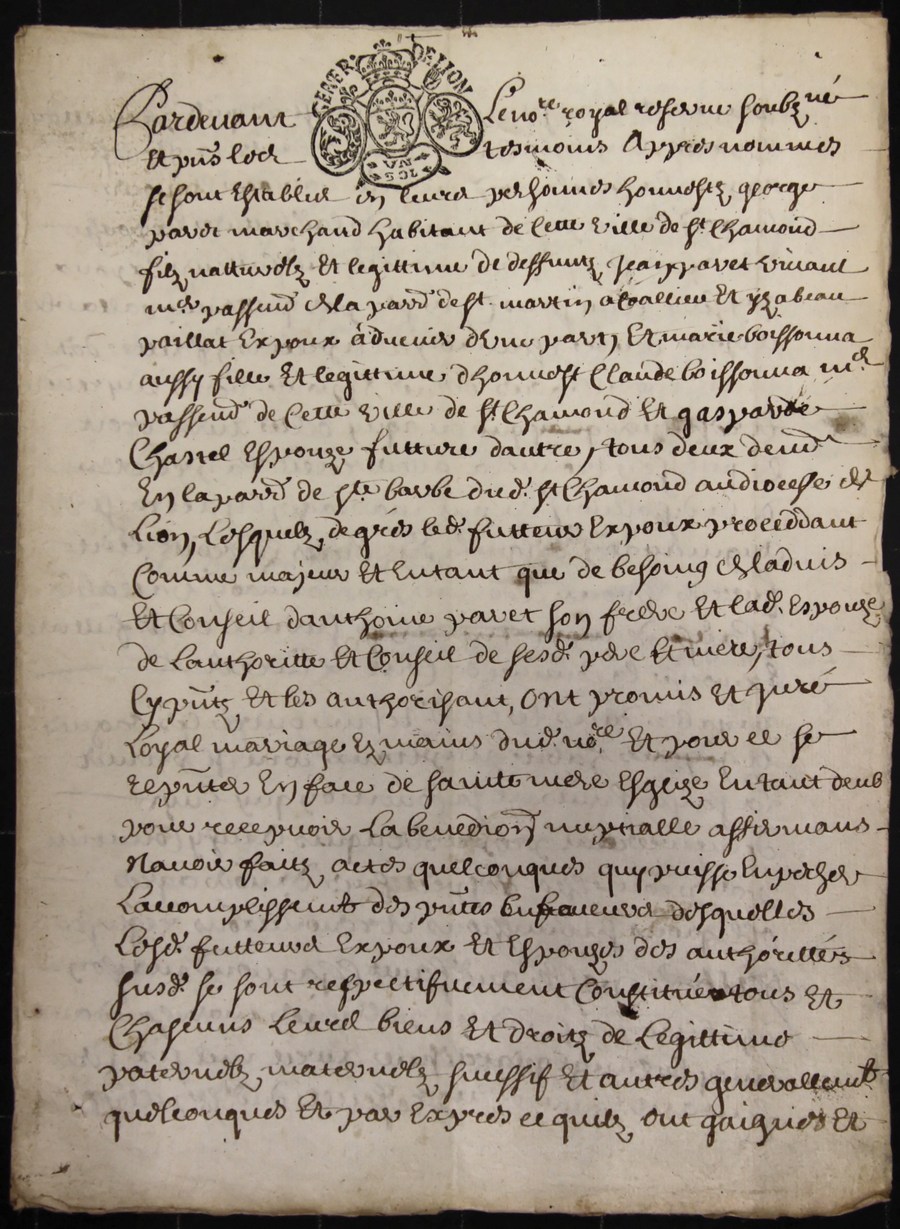 GENER. DE LION
Pardevant Le no.re royal reserve soubz.né
et pnts les tesmoins Appres nommes
se sont establis en leurs personnes honnestz george
pavet marchand habitant de cette ville de st Chamond
filz natturelz et legittime de deffuntz Jean pavet vivant
m.r passem.r de la par.e de st martin a Coallieu et yzabeau
paillat Expoux à advenir d'une part, Et marie boissonna
aussy fille et legittime d'honnest Claude boissonna m.r
passem.r de cette ville de st Chamond et gasparde
Chastel espouze future d'autre, tous deux dem.t
En la par.e de ste barbe dud. st Chamond au diocesse de
Lion, Lesquelz de grés led. futteur Expoux proceddant
Comme majeur et Entant que de besoing de ladvis
Et Conseil d'anthoine pavet son frere et lad. Espouze
de l'authoritte et Conseil de sesd. pere et mere, tous
Cy pntz et les authorisant, ont promis et juré
Loyal mariage ez mains dud. no.re Et pour ce se
repnter En face de sainte mere Esglize Entant deub
pour recepvoir La benedion nuptialle affirmans
Navoir faitz actes quelconques quy puisse Enpecher
Lacomplissemt des pntes En faveurs desquelles
Lesd. futteurs Expoux et Espouzes des authórittés
susd. se sont respectifvement Constitués tous et
Chascuns leurs biens et droitz de Legittime
paternelz maternelz sucessif et autres generallemt
quelconques Et par Expres ce quilz ont gaignes et